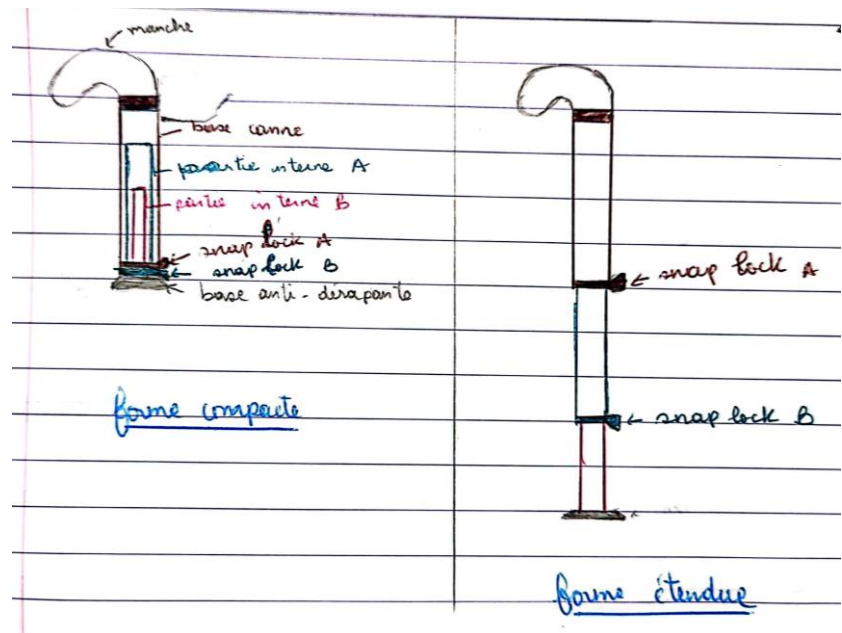 manche
base canne
partie interne A
partie interne B
snap lock A
snap lock B
base anti-dérapante
forme compacte
snap lock A
snap lock B
forme étendue